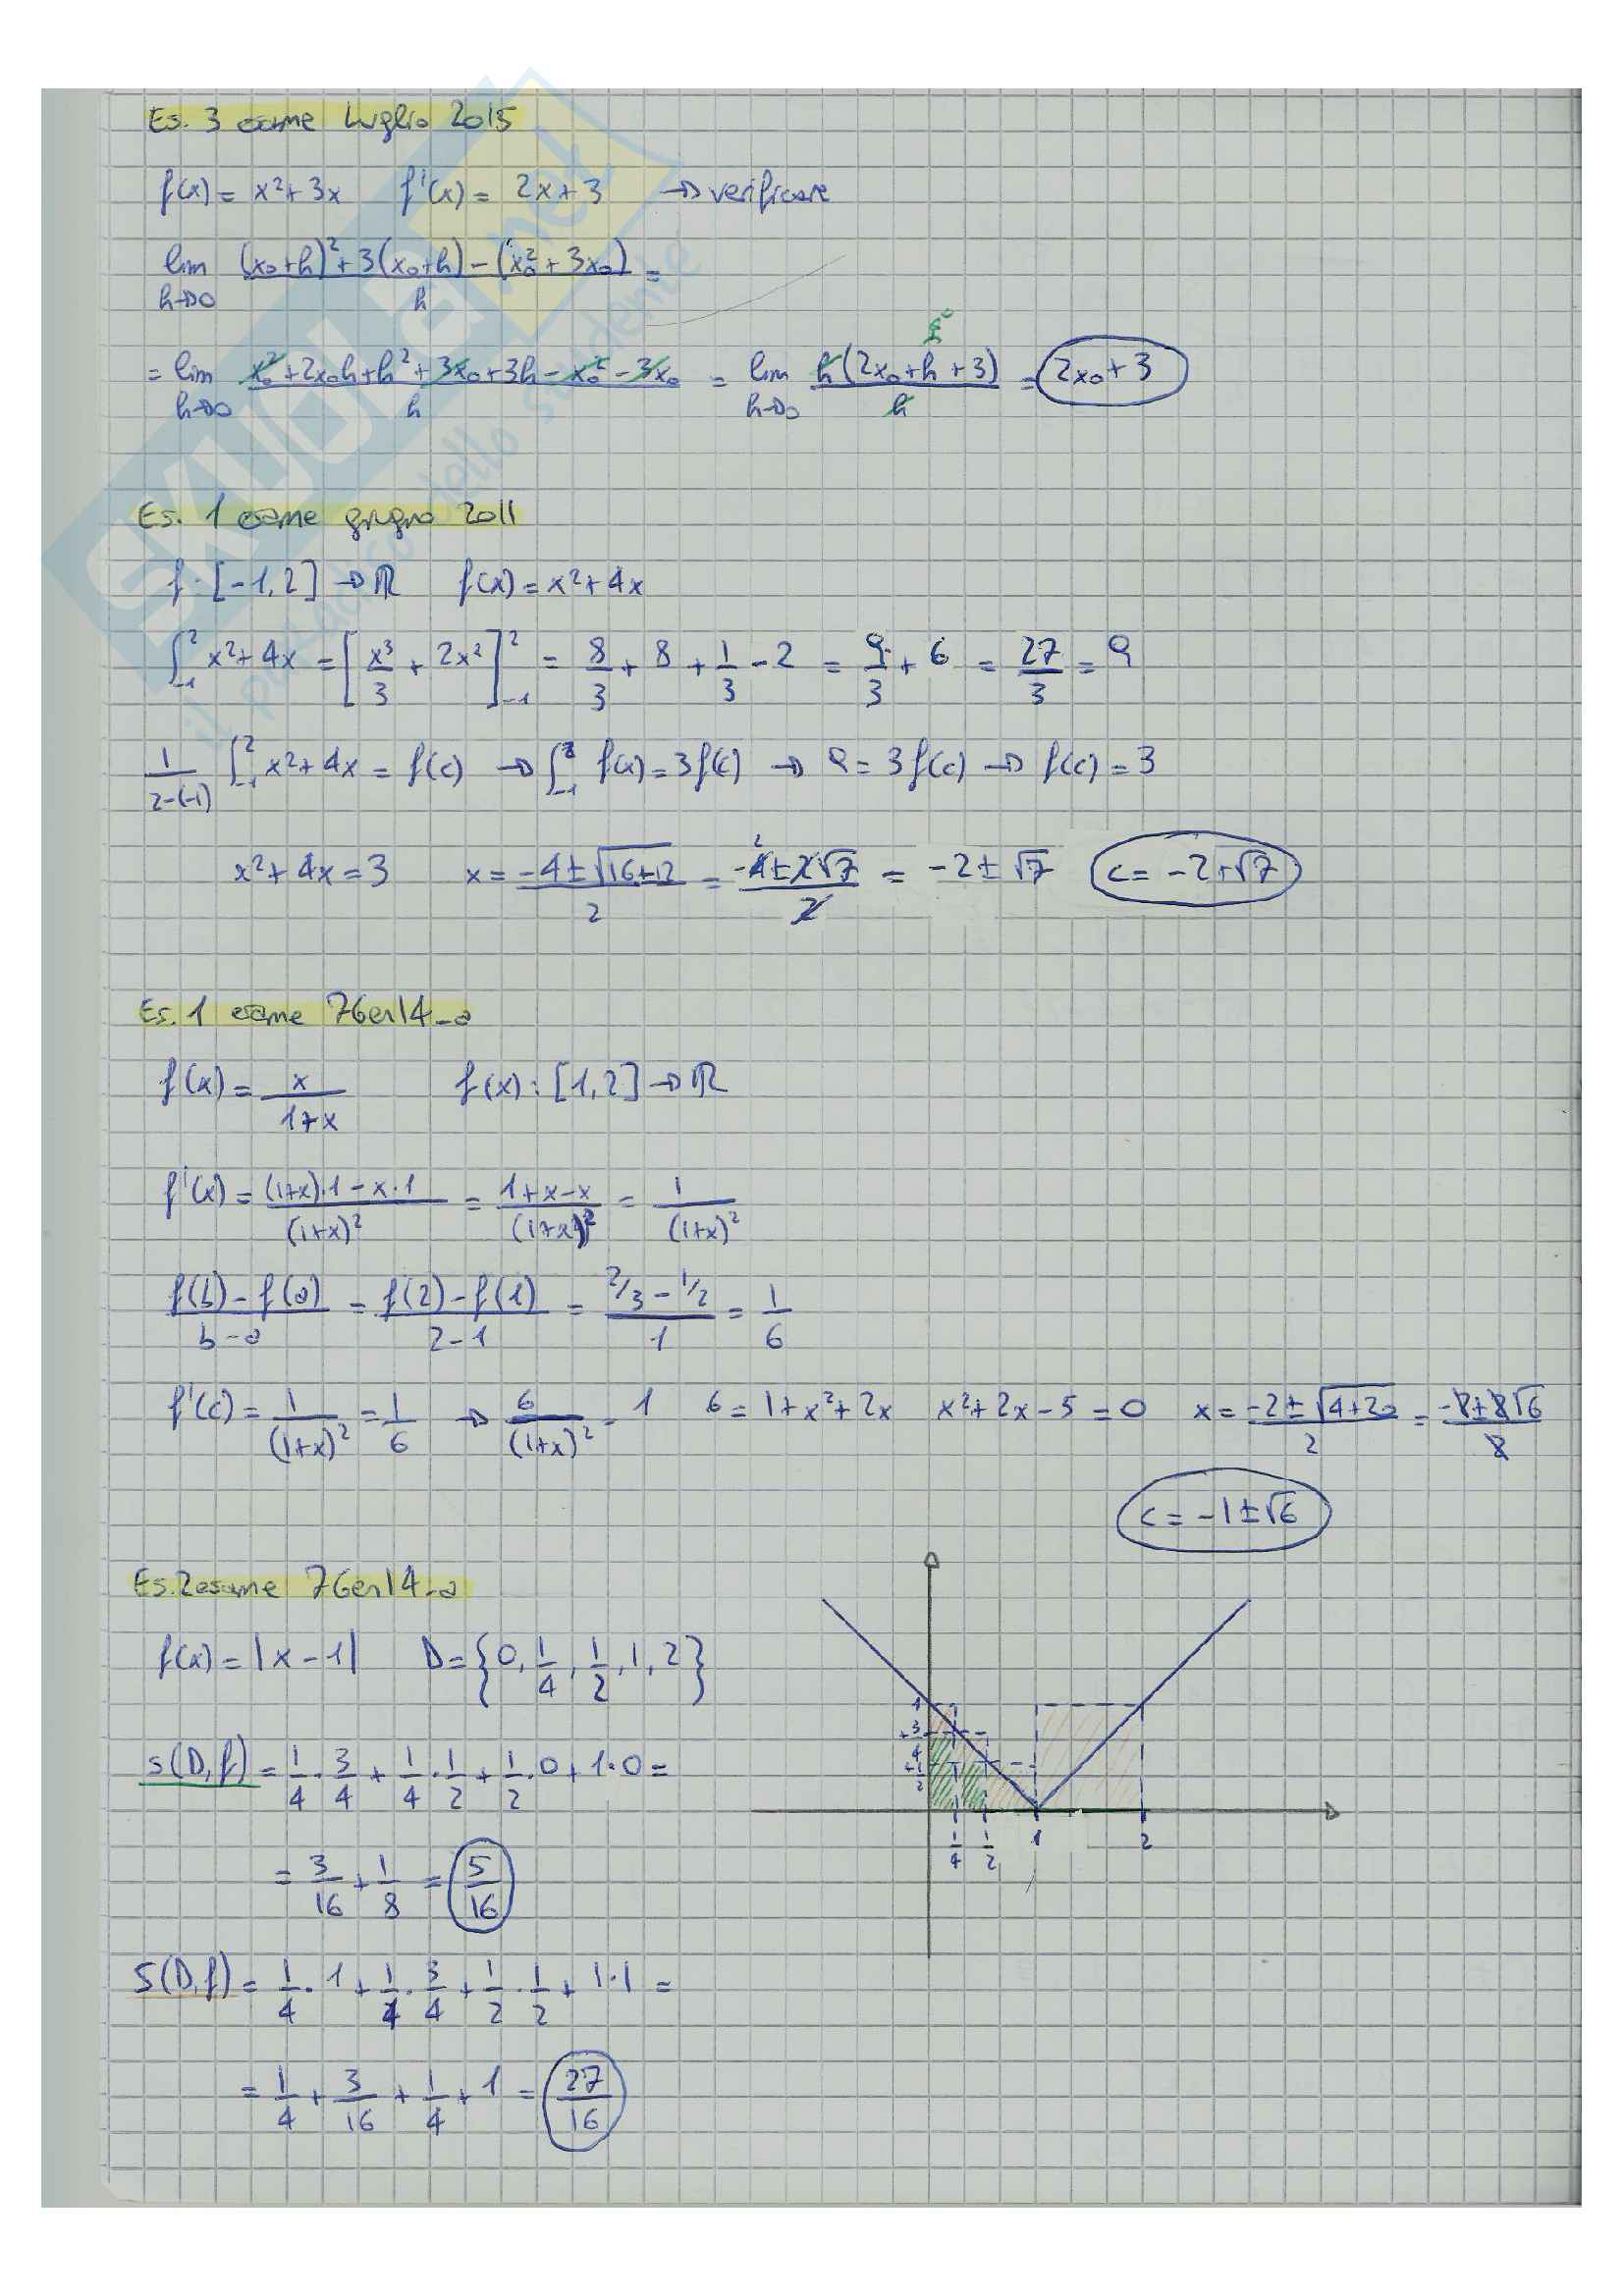 Es. 3 esame Luglio 2015
f(x) = x²+3x f'(x) = 2x+3 → verificare
lim h→0 ((x₀+h)²+3(x₀+h)-(x₀²+3x₀))/h =
= lim h→0 (x₀²+2x₀h+h²+3x₀+3h-x₀²-3x₀)/h = lim h→0 h(2x₀+h+3)/h = 2x₀+3
Es. 1 esame giugno 2011
f: [-1,2] → ℝ f(x) = x²+4x
∫₋₁² x²+4x = [x³/3 + 2x²]₋₁² = 8/3 + 8 + 1/3 - 2 = 9/3 + 6 = 27/3 = 9
1/(2-(-1)) ∫₋₁² x²+4x = f(c) → ∫₋₁² f(x) = 3f(c) → 9 = 3f(c) → f(c) = 3
x²+4x=3 x = (-4±√(16+12))/2 = (-4±2√7)/2 = -2±√7 c = -2+√7
Es. 1 esame 7Gen14_a
f(x) = x/(1+x) f(x): [1,2] → ℝ
f'(x) = ((1+x)·1-x·1)/(1+x)² = (1+x-x)/(1+x)² = 1/(1+x)²
(f(b)-f(a))/(b-a) = (f(2)-f(1))/(2-1) = (2/3-1/2)/1 = 1/6
f'(c) = 1/(1+x)² = 1/6 → 6/(1+x)² = 1 6 = 1+x²+2x x²+2x-5=0 x = (-2±√(4+20))/2 = (-2±2√6)/2
c = -1±√6
Es. 2 esame 7Gen14_a
f(x) = |x-1| D = {0, 1/4, 1/2, 1, 2}
s(D,f) = 1/4·3/4 + 1/4·1/2 + 1/2·0 + 1·0 =
= 3/16 + 1/8 = 5/16
S(D,f) = 1/4·1 + 1/4·3/4 + 1/2·1/2 + 1·1 =
= 1/4 + 3/16 + 1/4 + 1 = 27/16
1
3/4
1/2
1/4 1/2 1 2
SKUOLA.net
il paradiso dello studente